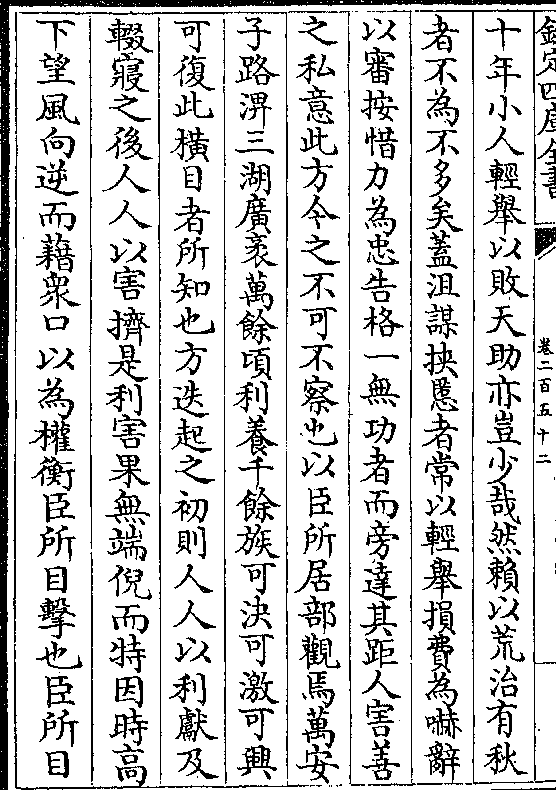 欽定四庫全書
卷二百五十二
十年小人輕舉以敗天助亦豈少哉然賴以荒治有秋
者不為不多矣蓋沮謀挾慝者常以輕舉損費為嚇辭
以審按惜力為忠告格一無功者而旁達其距人害善
之私意此方今之不可不察也以臣所居部觀焉萬安
子路淠三湖廣袤萬餘頃利養千餘族可決可激可興
可復此橫目者所知也方迭起之初則人人以利獻及
輟寢之後人人以害擠是利害果無端倪而特因時高
下望風向逆而藉衆口以為權衡臣所目擊也臣所目